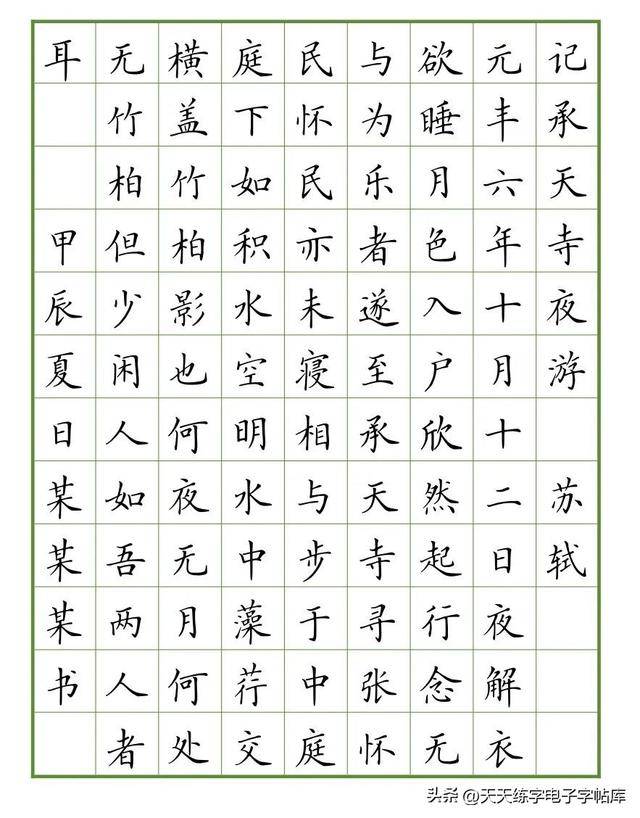 记承天寺夜游 苏轼
元丰六年十月十二日夜解衣
欲睡月色入户欣然起行念无
与为乐者遂至承天寺寻张怀
民怀民亦未寝相与步于中庭
庭下如积水空明水中藻荇交
横盖竹柏影也何夜无月何处
无竹柏但少闲人如吾两人者
耳 甲辰夏日某某某书
头条 @天天练字电子字帖库